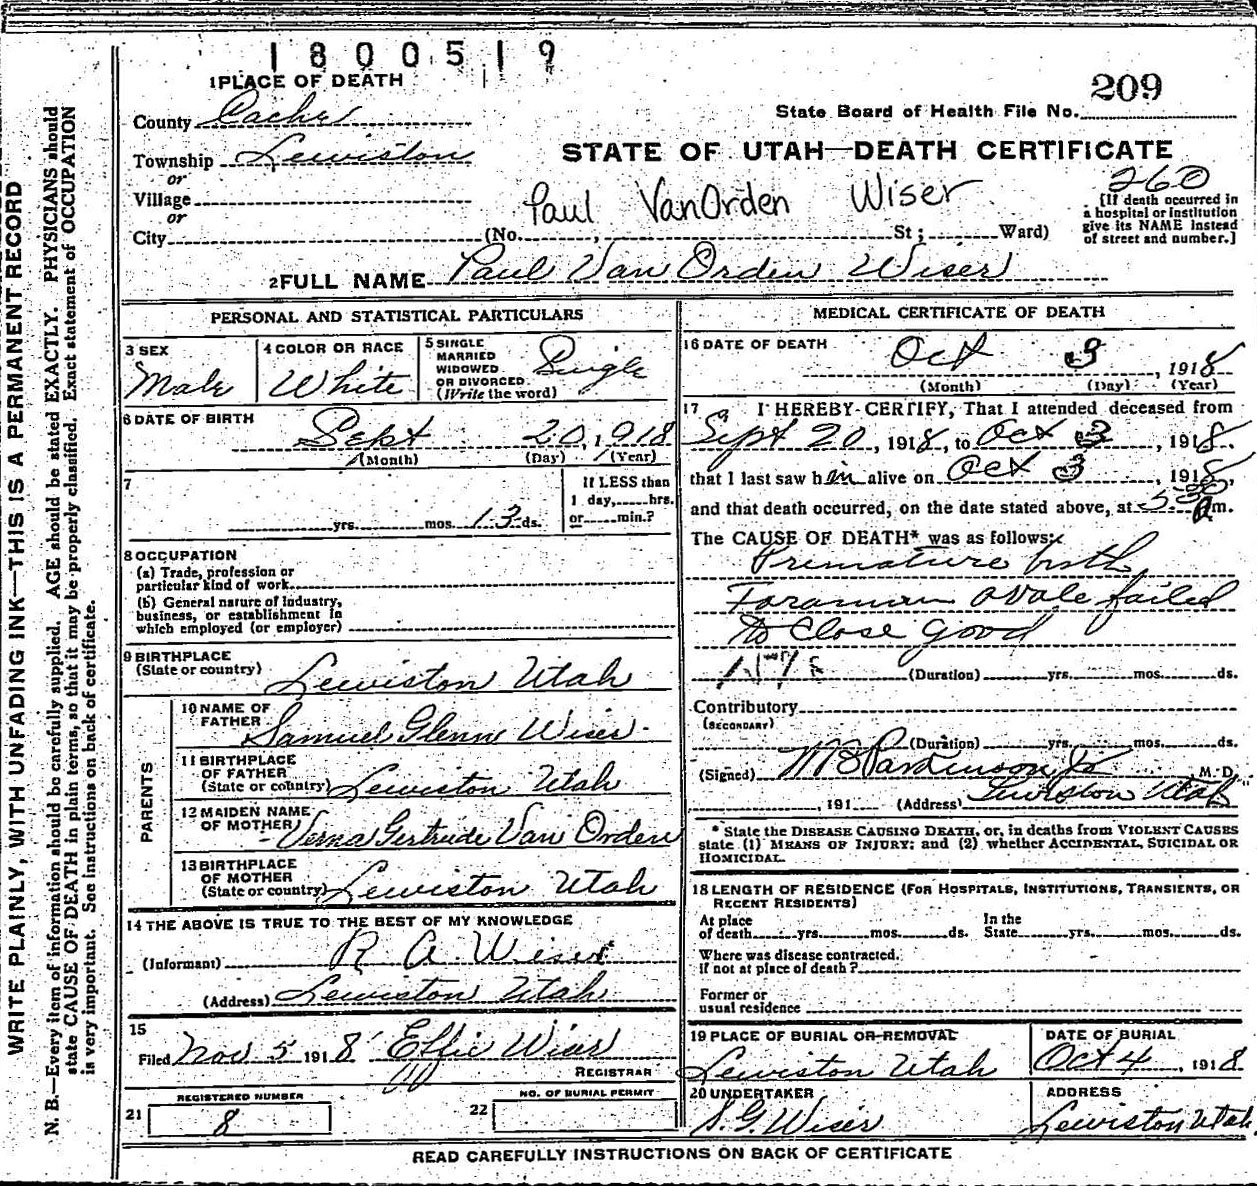 1800519
1 PLACE OF DEATH
209
State Board of Health File No.
County Cache
Township Lewiston
STATE OF UTAH—DEATH CERTIFICATE
or
Village
260
Paul VanOrden Wiser
[If death occurred in
a hospital or institution
give its NAME instead
of street and number.]
or
City (No. , St; Ward)
2 FULL NAME Paul Van Orden Wiser
PERSONAL AND STATISTICAL PARTICULARS
3 SEX
Male
4 COLOR OR RACE
White
5 SINGLE
MARRIED
WIDOWED
OR DIVORCED
(Write the word)
Single
6 DATE OF BIRTH
Sept 20, 1918
(Month) (Day) (Year)
7
yrs. mos. 13 ds.
If LESS than
1 day, hrs.
or min.?
8 OCCUPATION
(a) Trade, profession or
particular kind of work
(b) General nature of industry,
business, or establishment in
which employed (or employer)
9 BIRTHPLACE
(State or country) Lewiston Utah
PARENTS
10 NAME OF
FATHER
Samuel Glenn Wiser
11 BIRTHPLACE
OF FATHER
(State or country) Lewiston Utah
12 MAIDEN NAME
OF MOTHER
Verna Gertrude Van Orden
13 BIRTHPLACE
OF MOTHER
(State or country) Lewiston Utah
14 THE ABOVE IS TRUE TO THE BEST OF MY KNOWLEDGE
(Informant) R A Wiser
(Address) Lewiston Utah
15
Filed Nov 5 1918 Effie Wiser
REGISTRAR
REGISTERED NUMBER
21 8
NO. OF BURIAL PERMIT
22
MEDICAL CERTIFICATE OF DEATH
16 DATE OF DEATH
Oct 3, 1918
(Month) (Day) (Year)
17 I HEREBY CERTIFY, That I attended deceased from
Sept 20, 1918, to Oct 3, 1918.
that I last saw him alive on Oct 3, 1918,
and that death occurred, on the date stated above, at 5 30 m.
The CAUSE OF DEATH* was as follows:
Premature birth
Foramen ovale failed
to close good
(Duration) yrs. mos. ds.
Contributory
(SECONDARY)
(Duration) yrs. mos. ds.
(Signed) Parkinson Jr M. D.
, 191 (Address) Lewiston Utah
* State the DISEASE CAUSING DEATH, or, in deaths from VIOLENT CAUSES
state (1) MEANS OF INJURY; and (2) whether ACCIDENTAL, SUICIDAL OR
HOMICIDAL.
18 LENGTH OF RESIDENCE (FOR HOSPITALS, INSTITUTIONS, TRANSIENTS, OR
RECENT RESIDENTS)
At place
of death yrs. mos. ds.
In the
State yrs. mos. ds.
Where was disease contracted,
if not at place of death?
Former or
usual residence
19 PLACE OF BURIAL OR REMOVAL
Lewiston Utah
DATE OF BURIAL
Oct 4, 1918
20 UNDERTAKER
S. G. Wiser
ADDRESS
Lewiston Utah.
READ CAREFULLY INSTRUCTIONS ON BACK OF CERTIFICATE
WRITE PLAINLY, WITH UNFADING INK—THIS IS A PERMANENT RECORD
N. B.—Every item of information should be carefully supplied. AGE should be stated EXACTLY. PHYSICIANS should
state CAUSE OF DEATH in plain terms, so that it may be properly classified. Exact statement of OCCUPATION
is very important. See instructions on back of certificate.